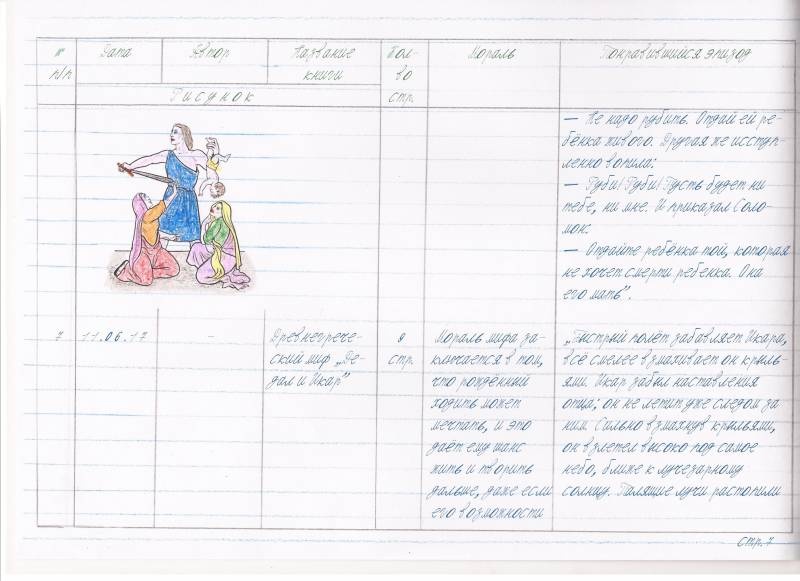 № п/п
Дата
Автор
Название книги
Кол-во стр.
Мораль
Понравившийся эпизод
Рисунок
— Не надо рубить. Отдай ей ре-
бёнка живого. Другая же исступ-
ленно вопила:
— Руби! Руби! Пусть будет ни
тебе, ни мне. И приказал Соло-
мон:
— Отдайте ребёнка той, которая
не хочет смерти ребенка. Она
его мать".
7
11.06.17
-
Древнегрече-
ский миф „Де-
дал и Икар"
9
стр.
Мораль мифа за-
ключается в том,
что рождённый
ходить может
мечтать, и это
даёт ему шанс
жить и творить
дальше, даже если
его возможности
„Быстрый полёт забавляет Икара,
всё смелее взмахивает он крыль-
ями. Икар забыл наставления
отца; он не летит уже следом за
ним. Сильно взмахнув крыльями,
он взлетел высоко под самое
небо, ближе к лучезарному
солнцу. Палящие лучи растопили
стр. 7